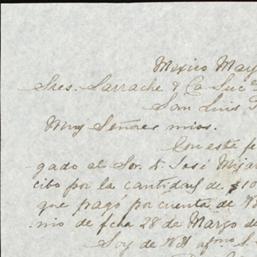 Mexico May
Sres. Larrache & Ca Suc
San Luis
Muy Señores mios.
Con este fe
gado al Sor. D. José Mijar
cibo por la cantidad de $10
que pagó por cuenta de
mio de fcha 28 de Marzo d
Soy de